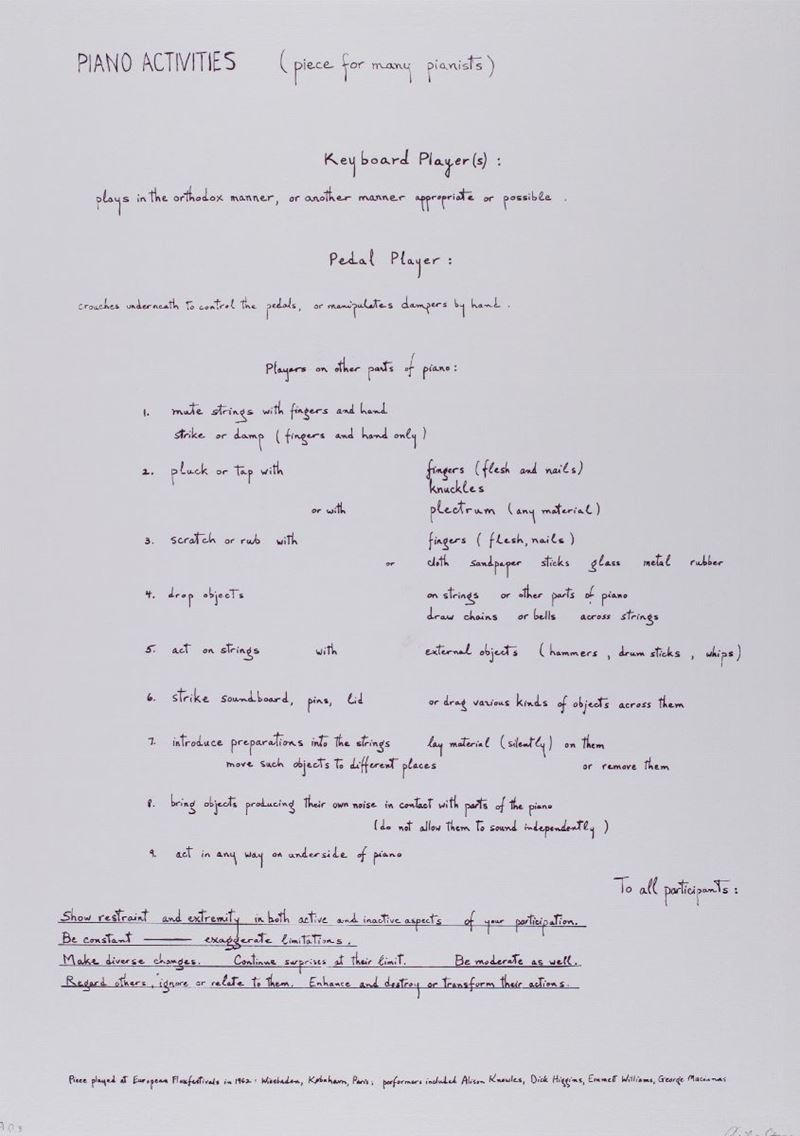 PIANO ACTIVITIES (piece for many pianists)
Keyboard Player(s) :
plays in the orthodox manner, or another manner appropriate or possible .
Pedal Player :
crouches underneath to control the pedals, or manipulates dampers by hand .
Players on other parts of piano :
1. mute strings with fingers and hand
strike or damp (fingers and hand only)
2. pluck or tap with fingers (flesh and nails)
knuckles
or with plectrum (any material)
3. scratch or rub with fingers (flesh, nails)
or cloth sandpaper sticks glass metal rubber
4. drop objects on strings or other parts of piano
draw chains or bells across strings
5. act on strings with external objects (hammers , drum sticks , whips)
6. strike soundboard, pins, lid or drag various kinds of objects across them
7. introduce preparations into the strings lay material (silently) on them
move such objects to different places or remove them
8. bring objects producing their own noise in contact with parts of the piano
(do not allow them to sound independently)
9. act in any way on underside of piano
To all participants :
Show restraint and extremity in both active and inactive aspects of your participation.
Be constant —— exaggerate limitations.
Make diverse changes. Continue surprises at their limit. Be moderate as well.
Regard others, ignore or relate to them. Enhance and destroy or transform their actions.
Piece played at European Fluxfestivals in 1962 : Wiesbaden, København, Paris ; performers included Alison Knowles, Dick Higgins, Emmett Williams, George Maciunas